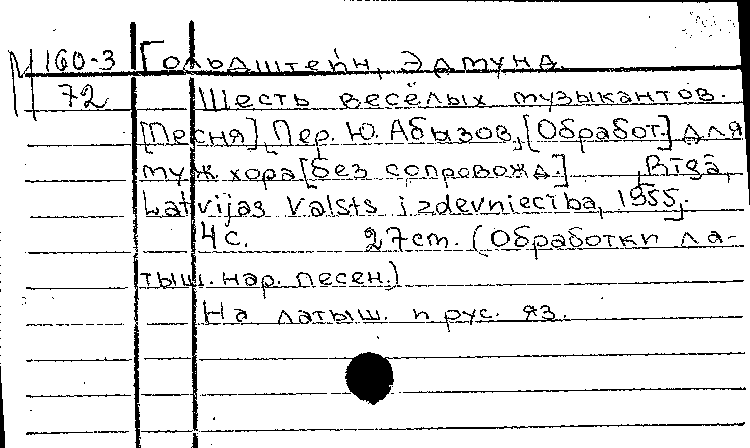 М 160-3 Гольдштейн, Эдмунд.
72 Шесть весёлых музыкантов.
[Песня]. Пер. Ю. Абызов, [Обработ.] для
муж. хора [без сопровожд.] Rīgā,
Latvijas Valsts izdevniecība, 1955,
4 с. 27 cm. (Обработки ла-
тыш. нар. песен.)
На латыш. и рус. яз.